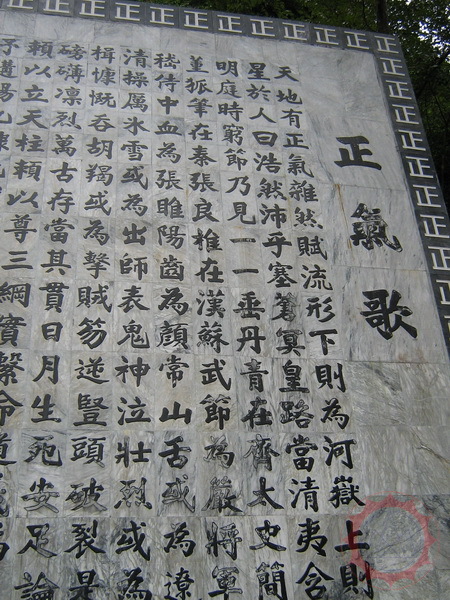 正氣歌
天地有正氣雜然賦流形下則為河嶽上則
星於人曰浩然沛乎塞蒼冥皇路當清夷含
明庭時窮節乃見一一垂丹青在齊太史簡
董狐筆在秦張良椎在漢蘇武節為嚴將軍
嵇侍中血為張睢陽齒為顏常山舌或為遼
清操厲冰雪或為出師表鬼神泣壯烈或為
楫慷慨吞胡羯或為擊賊笏逆豎頭破裂是
磅礴凜烈萬古存當其貫日月生死安足論
賴以立天柱賴以尊三綱實繫命道
予遘陽九